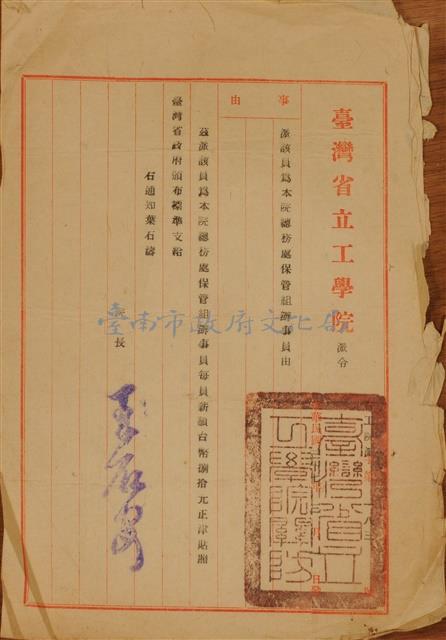 臺灣省立工學院 派令
事由
派該員為本院總務處保管組辦事員由
茲派該員為本院總務處保管組辦事員每員薪額台幣捌拾元正津貼照
臺灣省政府頒布標準支給
右通知葉石濤
院長 王石安
臺灣省立工學院關防
臺南市政府文化局